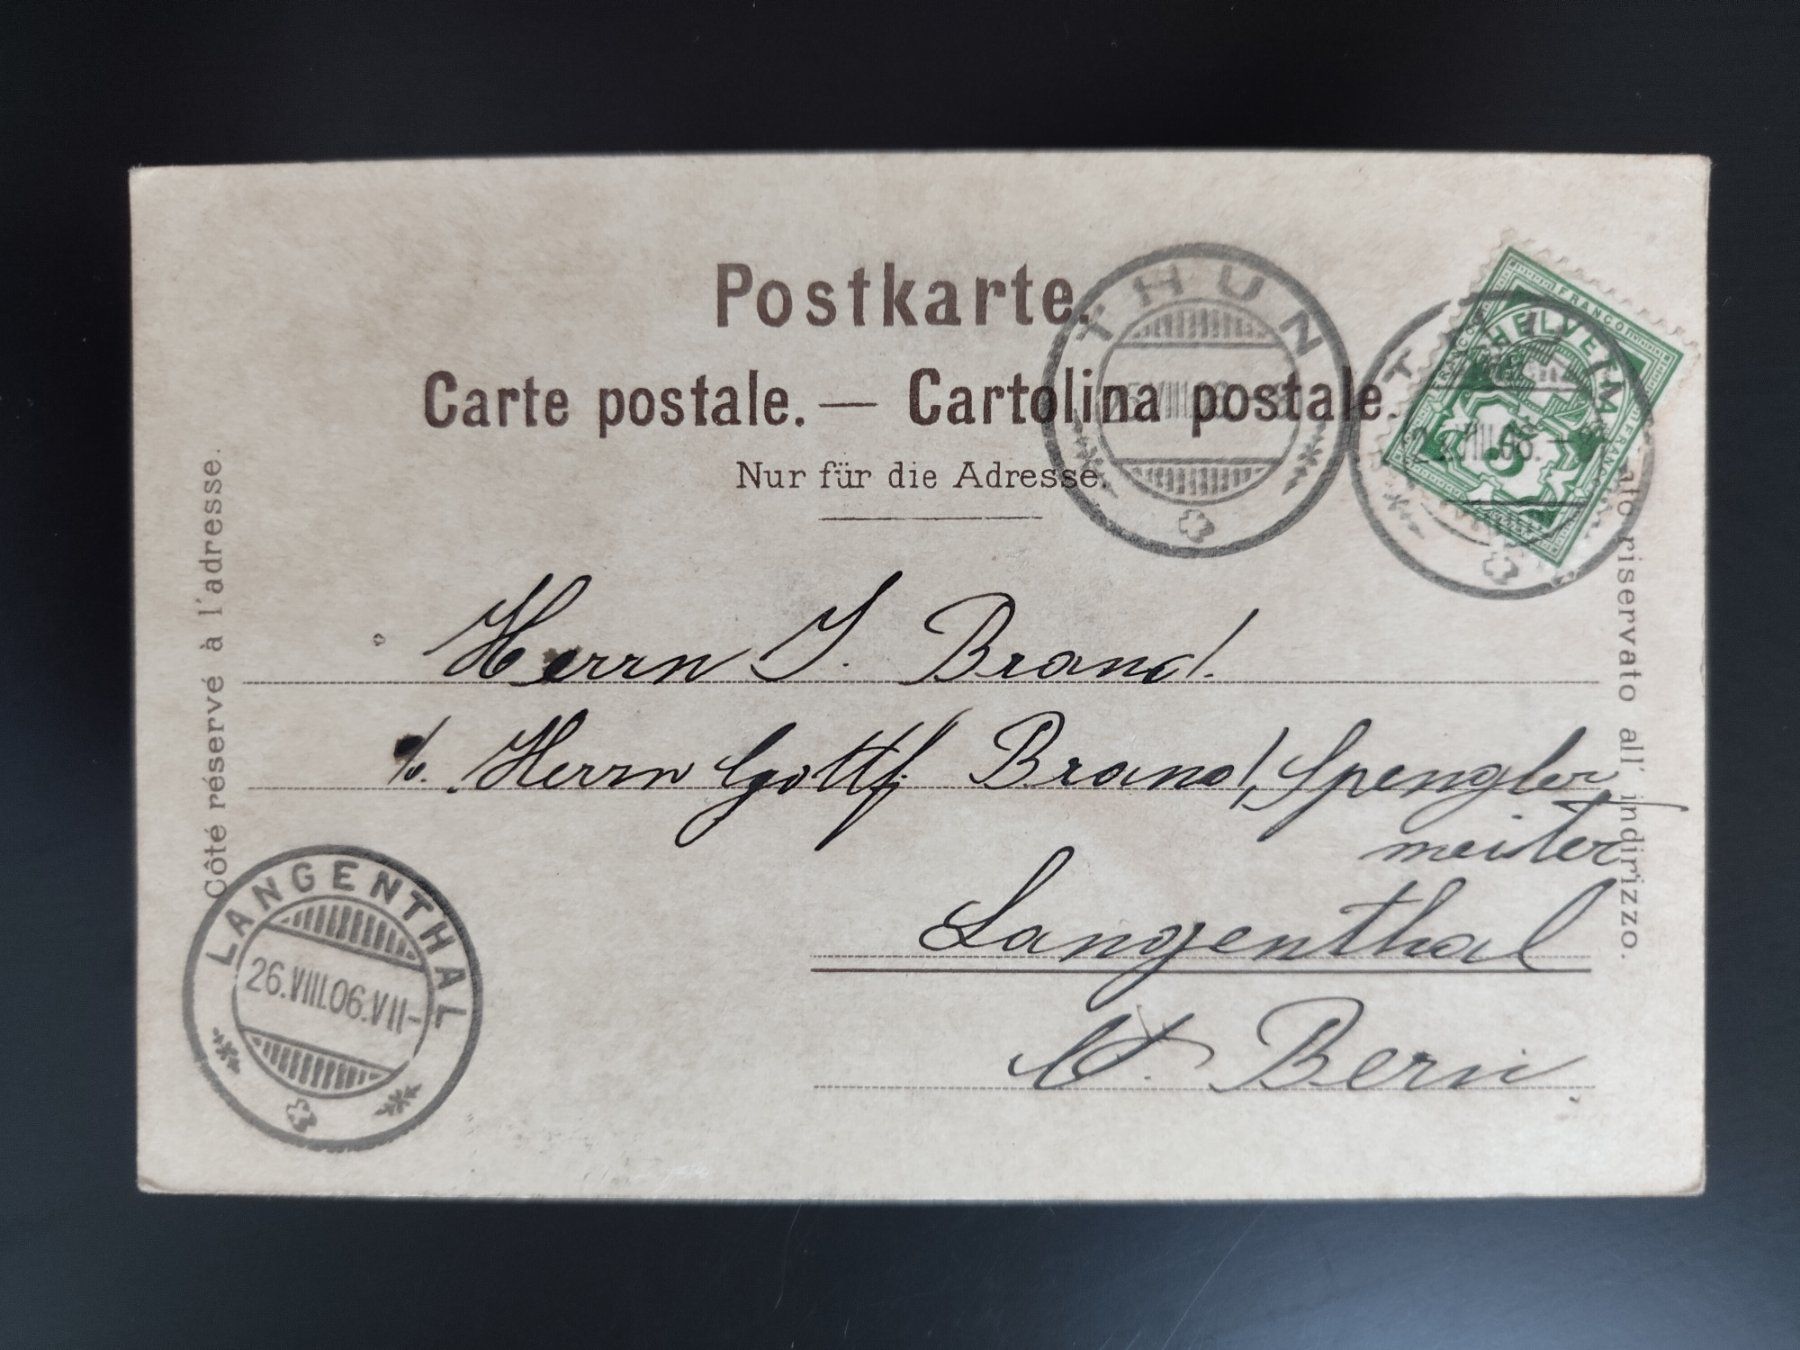 Postkarte.
Carte postale. — Cartolina postale.
Nur für die Adresse.
THUN
VIII.06
FRANCO
HELVETIA
FRANCO
5
VIII.06.
Côté réservé à l'adresse.
lato riservato all' indirizzo.
Herrn J. Brand.
c/o. Herrn Gottf. Brand, Spengler
meister
Langenthal
Ct. Bern
LANGENTHAL
26.VIII.06.VII-